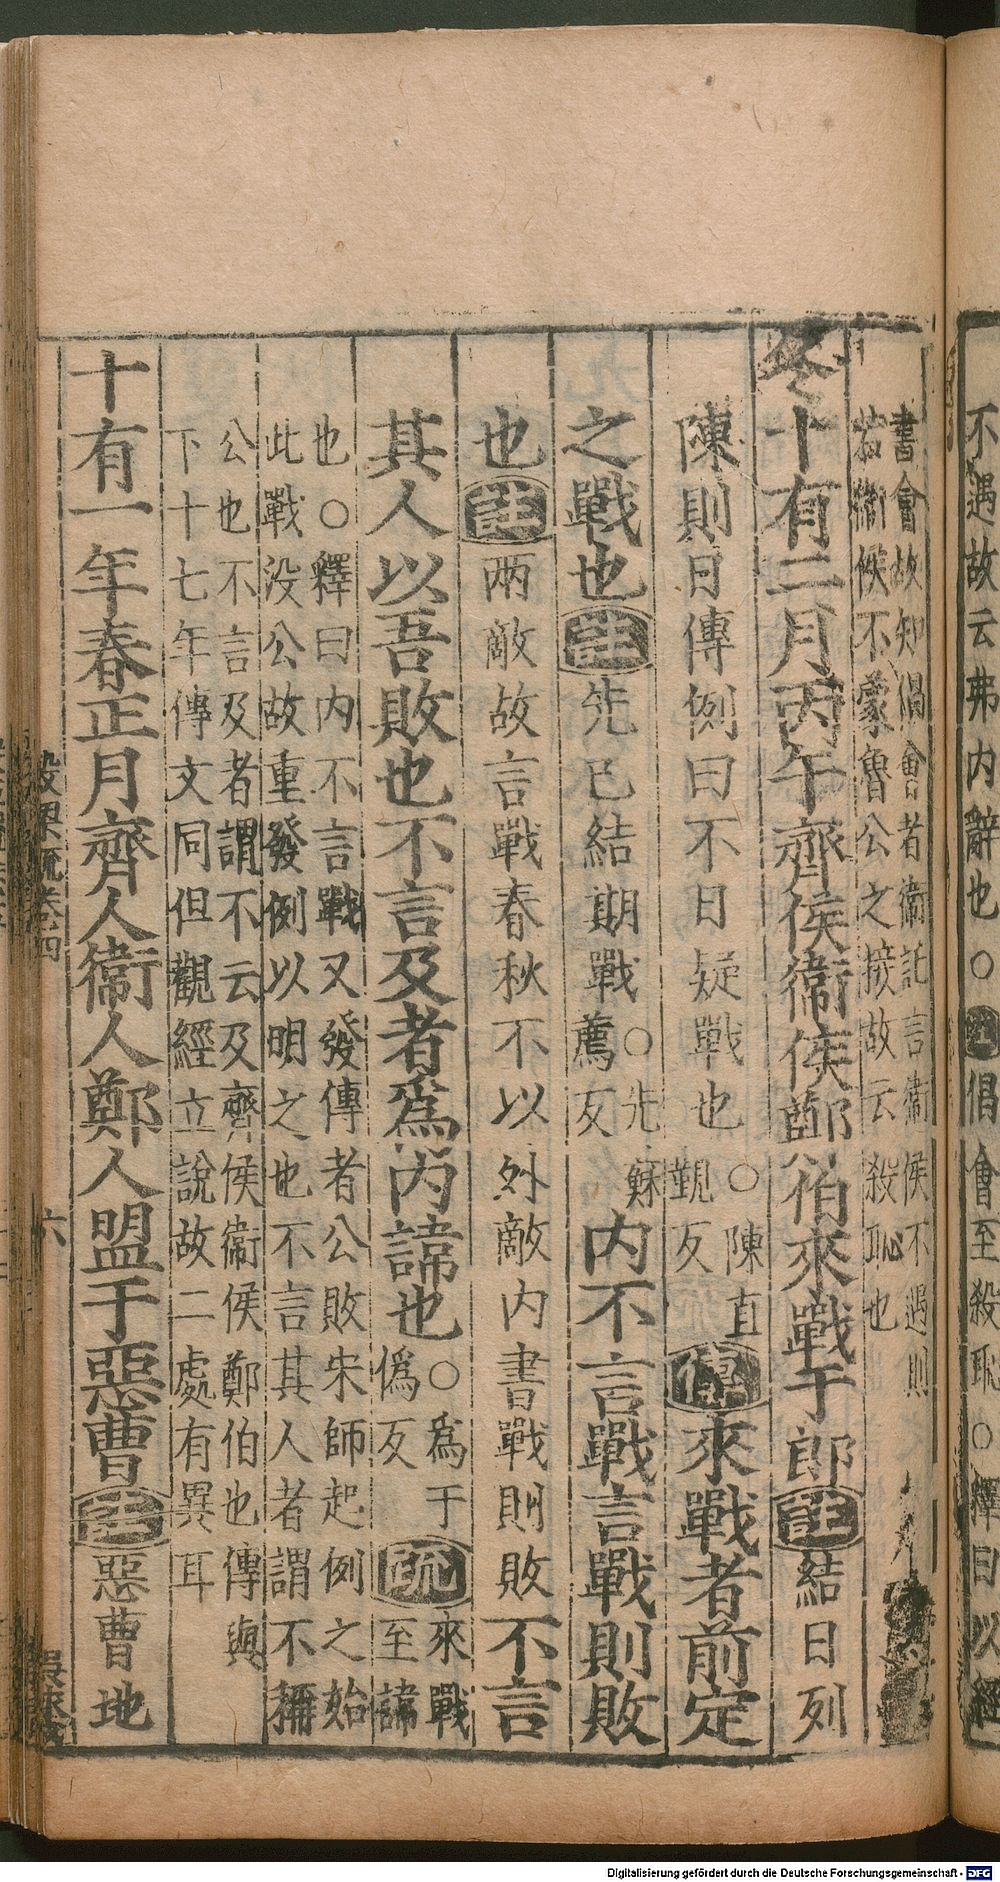 不遇故云弗内辭也○
倡會至殺恥○釋曰以經
書會故知倡會者衛託言衛侯不遇則
若衛侯不蒙魯公之接故云殺恥也
冬十有二月丙午齊侯衛侯鄭伯來戰于郎註結日列
陳則日傳例曰不日疑戰也○陳直
覲反傳來戰者前定
之戰也註先已結期戰○先蘇
薦反内不言戰言戰則敗
也註兩敵故言戰春秋不以外敵内書戰則敗不言
其人以吾敗也不言及者為内諱也○為于
偽反疏來戰
至諱
也○釋曰内不言戰又發傳者公敗宋師起例之始
此戰没公故重發例以明之也不言其人者謂不稱
公也不言及者謂不云及齊侯衛侯鄭伯也傳與
下十七年傳文同但觀經立說故二處有異耳
十有一年春正月齊人衛人鄭人盟于惡曹註惡曹地
穀梁疏卷四
六
Digitalisierung gefördert durch die Deutsche Forschungsgemeinschaft - DFG